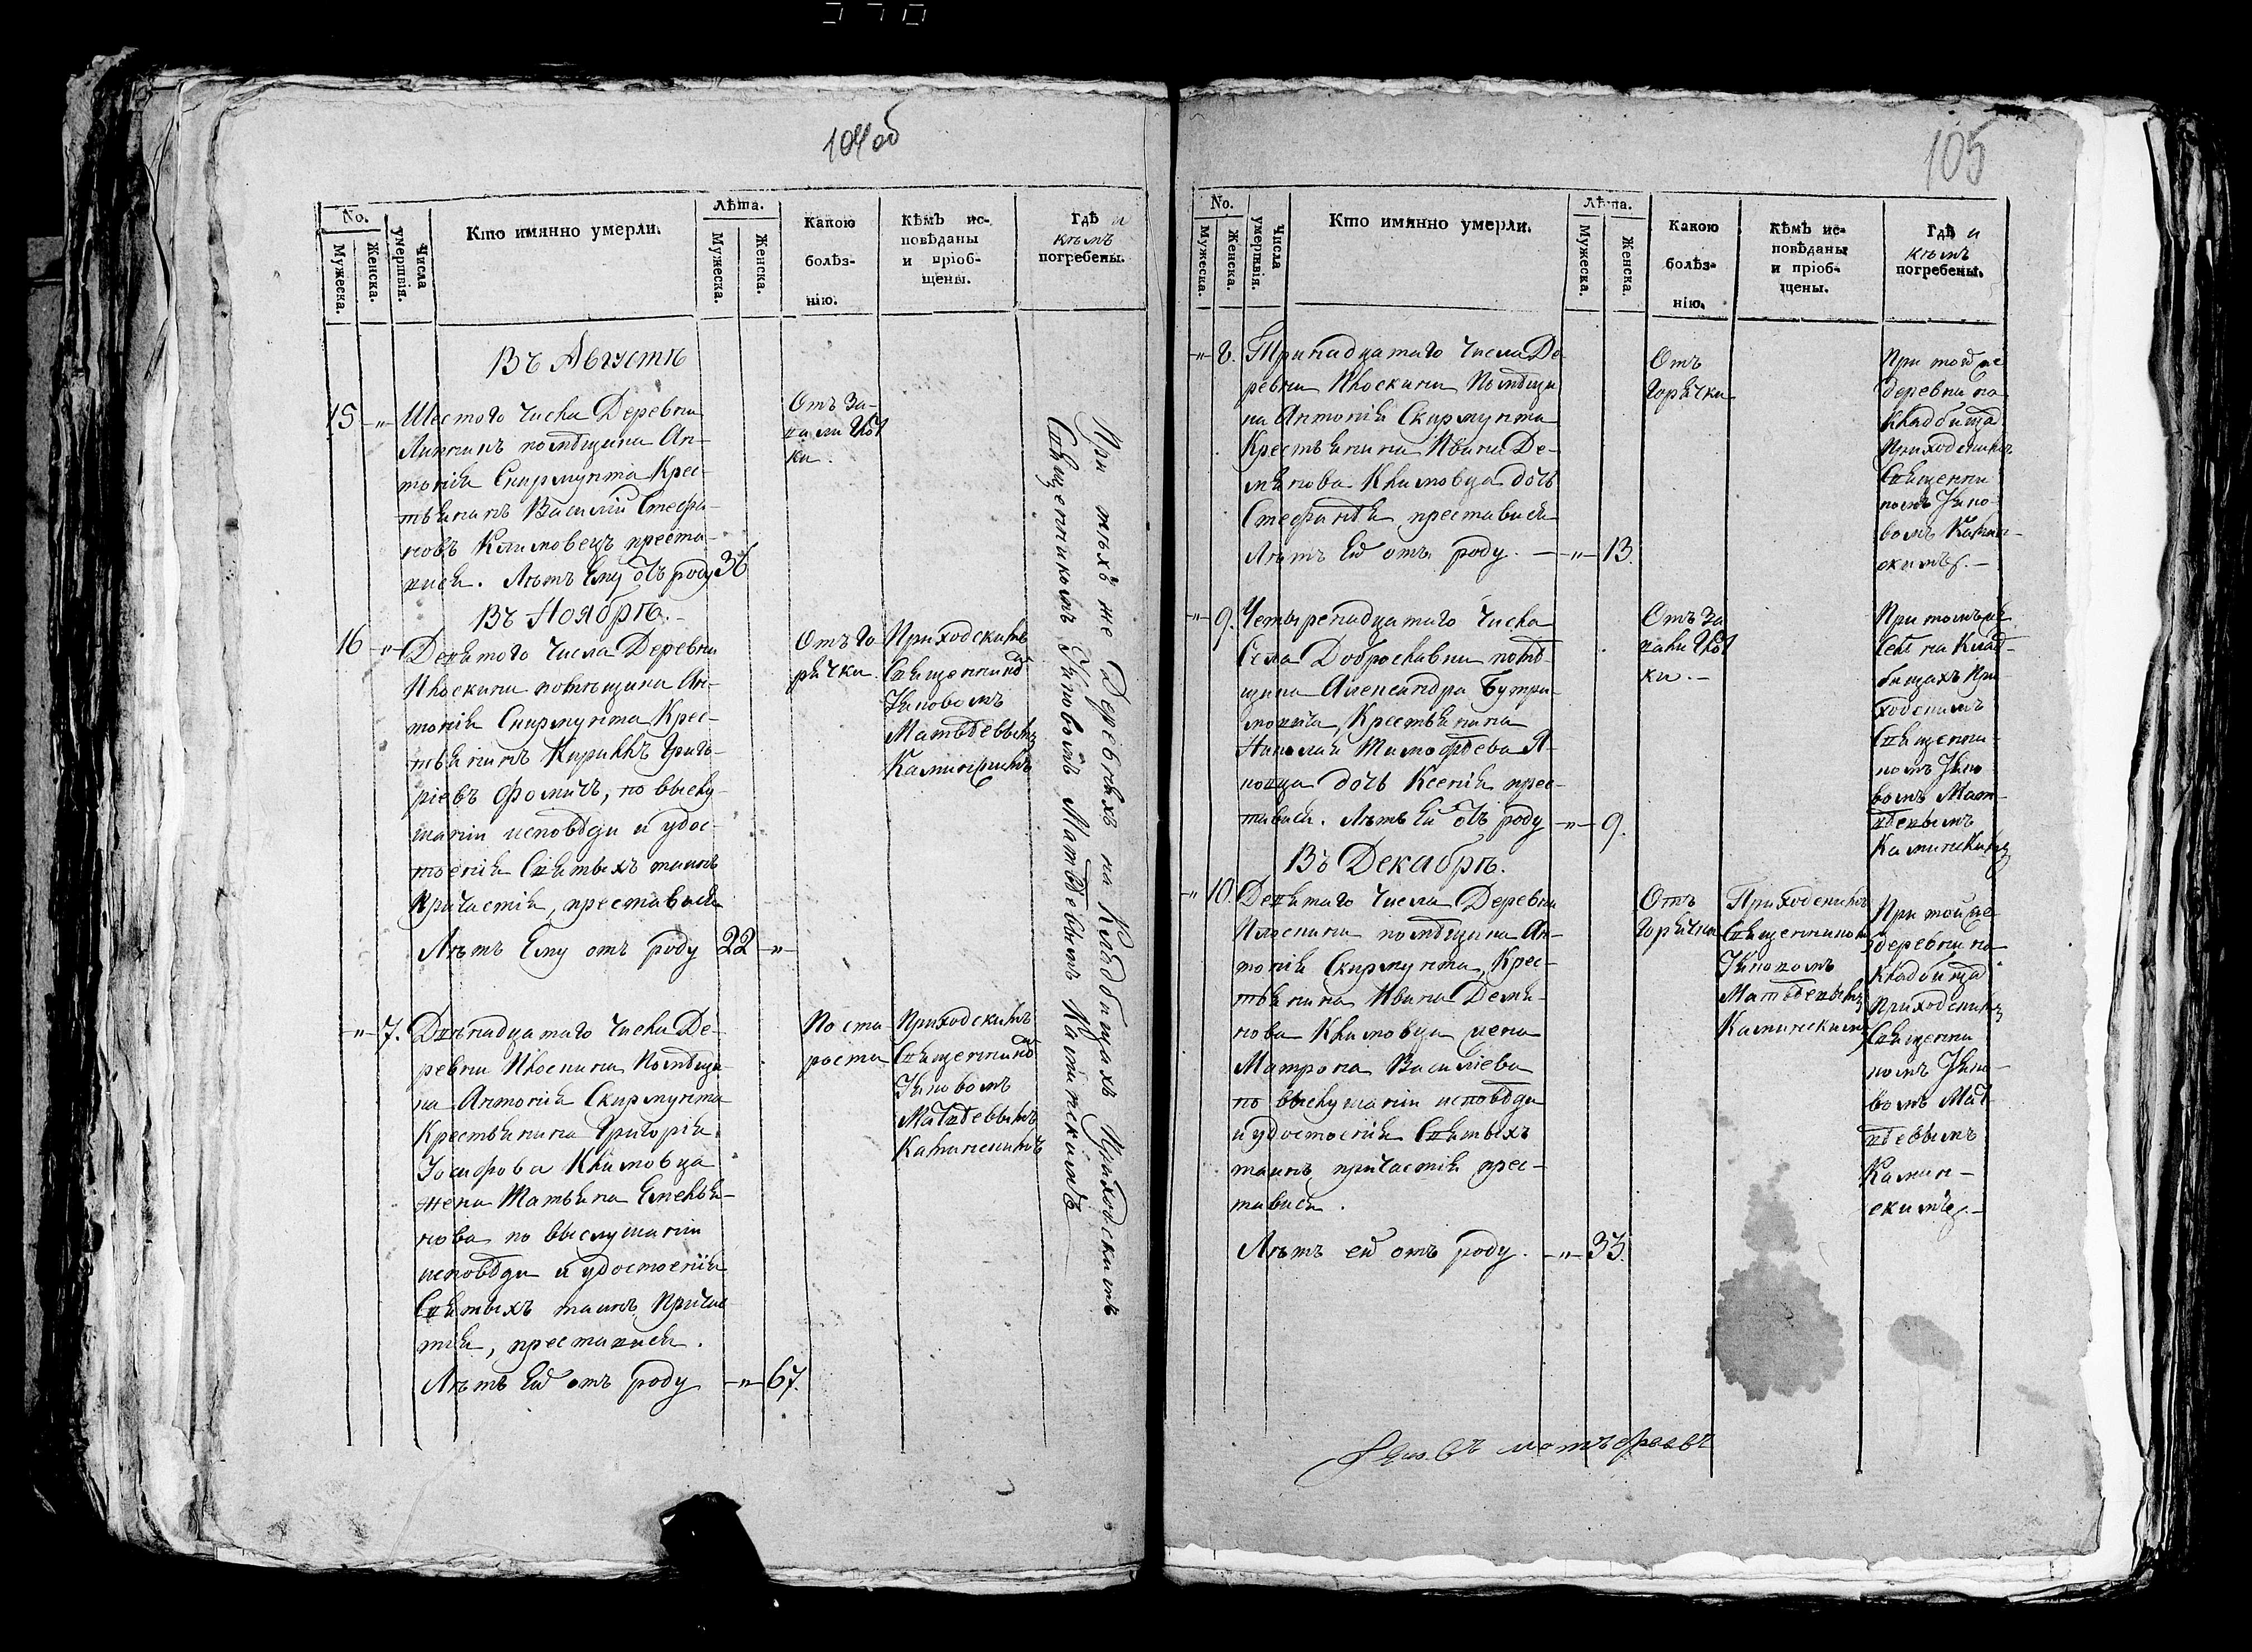 104об
No.
Мужеска.
Женска.
Числа
умертвія.
Кто имянно умерли.
Лѣта.
Мужеска.
Женска.
Какою
болѣз-
нію.
Кѣмъ ис-
повѣданы
и пріоб-
щены.
Гдѣ и
кѣмъ
погребены.
Въ Августѣ
15 -"-
Шестого числа Деревни
помѣщика Ан-
тонія Скирмунта Крес-
тьянинъ Василій Стефа-
новъ Климовецъ преста-
вися. Лѣтъ Ему отъ роду 36
Отъ за-
пали
ки.
Въ Ноябрѣ.
16 -"-
Девятого числа Деревни
Плоскини помѣщика Ан-
тонія Скирмунта Крес-
тьянинъ Кириллъ Григо-
ріевъ Фомичъ, по выслу-
шаніи исповѣди и удос-
тоенія Святыхъ таинъ
Причастія, преставися
Лѣтъ Ему отъ роду 22 -"-
Отъ го
рячки.
Приходскимъ
Священнико
Яковомъ
Матвѣевымъ
Каминскимъ
-"- 7.
Двѣнадцатаго числа Де-
ревни Плоскини Помѣщи-
ка Антонія Скирмунта
Крестьянина Григорія
Іосифова Климовца
жена Татьяна Емелья-
нова по выслушаніи
исповѣди и удостоенія
Святыхъ таинъ Причас
тія, преставися.
Лѣтъ Ей отъ роду -"- 67.
По ста
рости
Приходскимъ
Священнико
Яковомъ
Матвѣевымъ
Каминскимъ
При тѣхъ же Деревняхъ на Кладбищахъ Приходскимъ
Священникомъ Яковомъ Матвѣевымъ Каминскимъ
105
No.
Мужеска.
Женска.
Числа
умертвія.
Кто имянно умерли.
Лѣта.
Мужеска.
Женска.
Какою
болѣз-
нію.
Кѣмъ ис-
повѣданы
и пріоб-
щены.
Гдѣ и
кѣмъ
погребены.
-"- 8.
Тринадцатаго числа Де
ревни Плоскини Помѣщи
ка Антонія Скирмунта
Крестьянина Ивана Де-
мянова Климовца дочь
Стефанія преставися
Лѣтъ Ей отъ роду. -"- 13.
Отъ
Горячки
При той же
деревни на
кладбищѣ
Приходскимъ
Священни
комъ Яко-
вомъ Камин-
скимъ.
-"- 9.
Четыренадцатаго числа
Села Доброславки помѣ-
щика Александра Бутри-
мовича, Крестьянина
Николая Тимофѣева Я-
ковца дочь Ксенія прес-
тавися. Лѣтъ Ей отъ роду -"- 9.
Отъ За
пали
ки.
При томъ же
селѣ на Клад-
бищахъ При-
ходскимъ
Священни-
комъ Яко
вомъ Мат-
вѣевымъ
Каминскимъ
Въ Декабрѣ.
-"- 10.
Девятаго числа Деревни
Плоскини помѣщика Ан-
тонія Скирмунта, Крес-
тьянина Ивана Демя-
нова Климовца жена
Матрона Василіева
по выслушаніи исповѣди
и удостоенія Святыхъ
таинъ причастія прес-
тавися.
Лѣтъ ей отъ роду. -"- 33.
Отъ
Горячки
Приходскимъ
Священникомъ
Яковомъ
Матвѣевымъ
Каминскимъ
При той же
деревни на
кладбищѣ
Приходскимъ
Священни
комъ Яко-
вомъ Мат-
вѣевымъ
Камин-
скимъ.